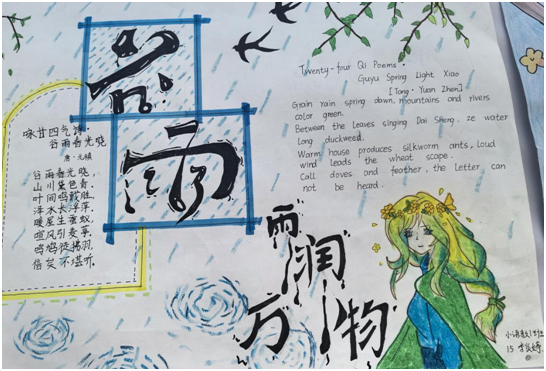 谷
雨
谷雨春光晓
唐·元稹
谷雨春光晓，
山川黛色青。
叶间鸣戴胜，
泽水长浮萍。
暖屋生蚕蚁，
喧风引麦葶。
鸣鸠徒拂羽，
信矣不堪听。
Twenty-four Qi Poems·
Guyu Spring Light Xiao
[Tang·Yuan Zhen]
Grain rain spring dawn, mountains and rivers
color green.
Between the leaves singing Dai Sheng, ze water
Long duckweed.
Warm house produces silkworm ants, loud
wind leads the wheat scope.
Call doves and feather, the letter can
not be heard.
雨
润
万
物